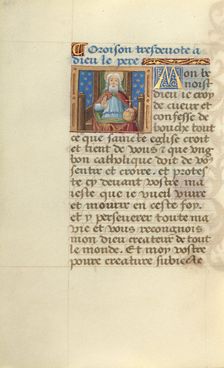 Oroison tresdevote a
dieu le pere
Mon be
noist
dieu ie croy
de cueur et
confesse de
bouche tout
ce que saincte eglise croit
et tient de vous & que ung
bon catholique doit de vo9
sentir et croire. et protes
te cy devant vostre ma
ieste que ie vueil vivre
et mourir en ceste foy.
et y perseverer toute ma
vie et vous recongnois
mon dieu createur de tout
le monde. Et moy vostre
povre creature subiecte